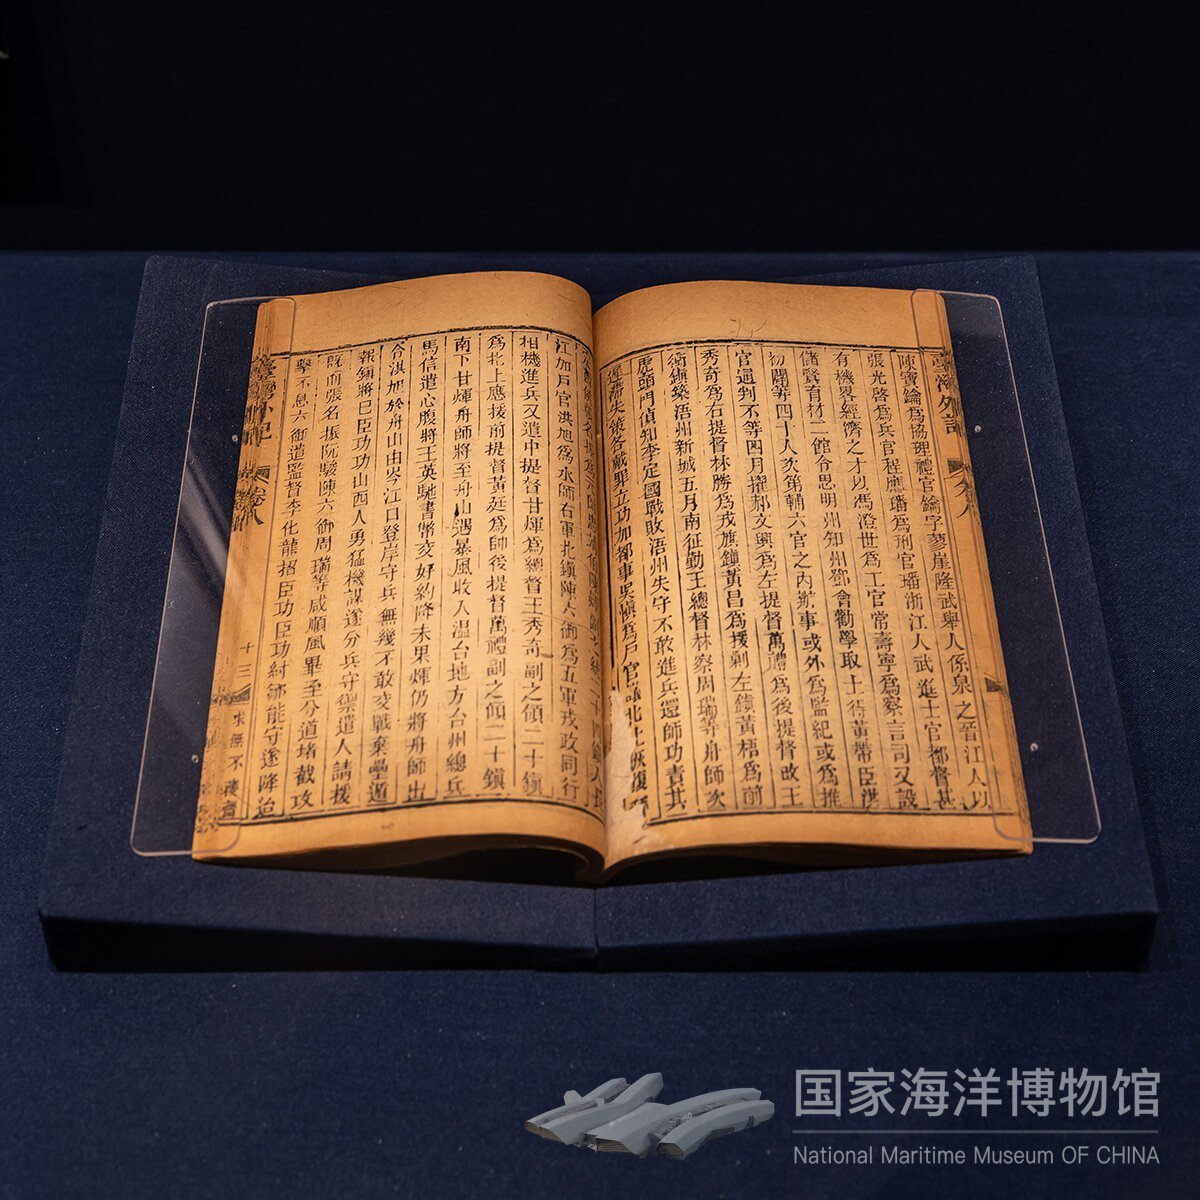 臺灣外記 卷八
陳寶鑰為協理禮官鑰字蓼崖隆武舉人係泉之晉江人以
張光啓為兵官程應璠為刑官璠浙江人武進士官都督甚
有機畧經濟之才以馮澄世為工官常壽寧為察言司又設
儲賢育材二館令思明州知州鄧會勸學取士得黃帶臣洪
初闢等四十人次第輔六官之內辦事或外為監紀或為推
官通判不等四月擢郝文興為左提督萬禮為後提督改王
秀奇為右提督林勝為戎旗鎮黃昌為援剿左鎮黃梧為前
衝鎮築浯州新城五月南征勤王總督林察周瑞等舟師次
虎頭門偵知李定國戰敗浯州失守不敢進兵還師功責其
遲滯失策各戴罪立功加都事吳愼為戶官議北上恢復
江加戶官洪旭為水師右軍北鎮陳六御為五軍戎政同行
相機進兵又遣中提督甘煇為總督王秀奇副之領二十鎮
為北上應援前提督黃廷為帥後提督萬禮副之領二十鎮
南下甘煇舟師將至舟山遇暴風收入温台地方台州總兵
馬信遣心腹將王英馳書幣交好約降未果煇仍將舟師出
令淇旭於舟山由岑江口登岸守兵無幾不敢交戰棄壘遁
報鎮將巴臣功功山西人勇猛機謀遂分兵守禦遣人請援
旣而張名振阮駿陳六御周瑞等咸順風畢至分道堵截攻
擊不息六御遣監督李化龍招臣功臣功紂鄒能守遂降治
臺灣外記 卷八 十三 求無不獲齋
国家海洋博物馆
National Maritime Museum OF CHINA